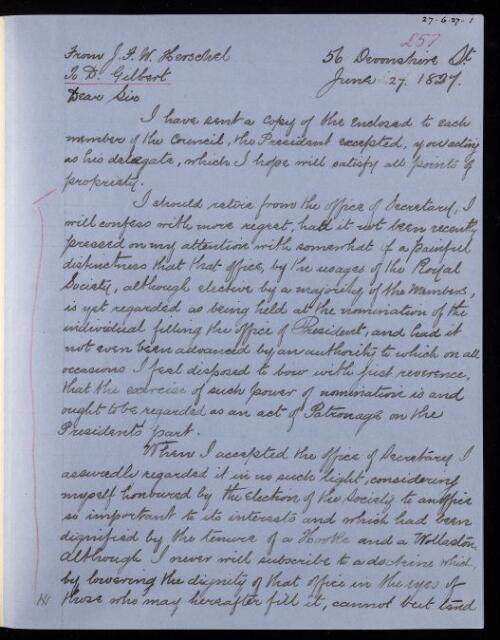 27-6-27-1
257
From J. F. W. Herschel 56 Devonshire St
To D. Gilbert June 27. 1827.
Dear Sir
I have sent a copy of the enclosed to each
member of the Council, the President excepted, you acting
as his delegate, which I hope will satisfy all points of
propriety.
I should retire from the office of Secretary, I
will confess with more regret, had it not been recently
pressed on my attention with somewhat of a painful
distinctness that that office, by the usages of the Royal
Society, although elective by a majority of the Members,
is yet regarded as being held at the nomination of the
individual filling the office of President, and had it
not even been advanced by an authority to which on all
occasions I feel disposed to bow with just reverence,
that the exercise of such power of nomination is and
ought to be regarded as an act of Patronage on the
Presidents part.
When I accepted the office of Secretary I
assuredly regarded it in no such light, considering
myself honoured by the election of the Society to an office
so important to its interests and which had been
dignified by the tenure of a Hooke and a Wollaston.
Although I never will subscribe to a doctrine which,
by lowering the dignity of that office in the eyes of
those who may hereafter fill it, cannot but tend